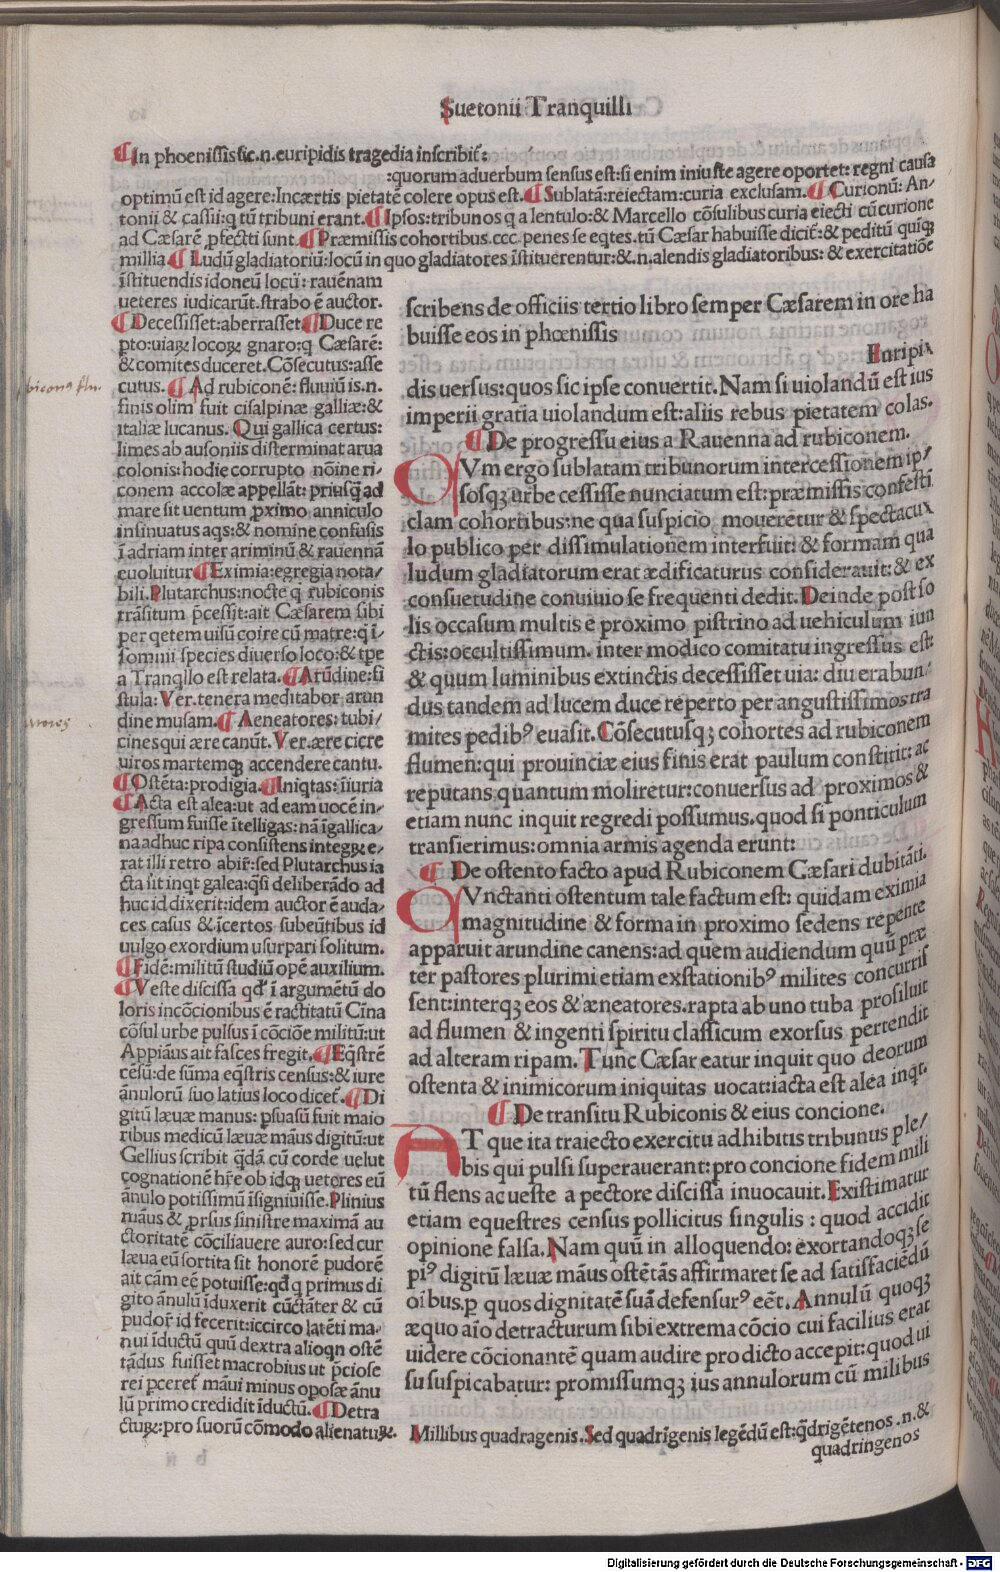 Suetonii Tranquilli
¶In phoenissis sic.n.euripidis tragedia inscribit̃:
:quorum aduerbum sensus est:si enim iniuste agere oportet: regni causa
optimũ est id agere:Incærtis pietatẽ colere opus est. ¶Sublatã:reiectam:curia exclusam. ¶Curionũ: An-
tonii & cassii:q tũ tribuni erant. ¶Ipsos:tribunos q a lentulo:& Marcello cõsulibus curia eiecti cũ curione
ad Cæsarẽ ꝓfecti sunt. ¶Præmissis cohortibus.ccc.penes se eqtes.tũ Cæsar habuisse dicit̃:& peditũ quiqꝫ
millia ¶Ludũ gladiatoriũ:locũ in quo gladiatores ĩstituerentur:&.n.alendis gladiatoribus: & exercitatiõe
ĩstituendis idoneũ locũ: rauẽnam
ueteres iudicarũt.strabo ẽ auctor.
¶Decessisset:aberrasset ¶Duce re
pto:uiaꝝ locoꝝ gnaro:q Cæsarẽ:
& comites duceret. Cõsecutus:asse
cutus. ¶Ad rubiconẽ: fluuiũ is.n.
finis olim fuit cisalpinæ galliæ:&
italiæ lucanus. Qui gallica certus:
limes ab ausoniis disterminat arua
colonis:hodie corrupto nõine ri-
conem accolæ appellãt: priusq̃ ad
mare sit uentum ꝓximo anniculo
insinuatus aqs:& nomine confusis
ĩ adriam inter ariminũ & rauennã
euoluitur ¶Eximia:egregia nota/
bili.Plutarchus:nocte q rubiconis
trãsitum p̃cessit:ait Cæsarem sibi
per qetem uisũ coire cũ matre:q̃ ĩ/
somnii species diuerso loco:& tp̃e
a Tranqllo est relata. ¶Arũdine:fi
stula: Ver.tenera meditabor arun
dine musam. ¶Aeneatores: tubi/
cines qui ære canũt. Ver.ære ciere
uiros martemqꝫ accendere cantu.
¶Ostẽta:prodigia. ¶Iniqtas:ĩiuria
¶Acta est alea:ut ad eam uocẽ in/
gressum fuisse ĩtelligas:nã ĩgallica/
na adhuc ripa consistens integꝝ e/
rat illi retro abir̃:sed Plutarchus ia
cta sit inqt galea:q̃si deliberãdo ad
huc id dixerit:idem auctor ẽ auda/
ces casus & ĩcertos subeũtibus id
uulgo exordium usurpari solitum.
¶Fidẽ:militũ studiũ opẽ auxilium.
¶Veste discissa qđ ĩ argumẽtũ do
loris incõcionibus ẽ ractitatũ Cĩna
cõsul urbe pulsus ĩ cõciõe militũ:ut
Appiãus ait fasces fregit. ¶Eq̃strẽ
cẽsũ:de sũma eq̃stris census:& iure
ãnulorũ suo latius loco dicet̃. ¶Di
gitũ læuæ manus: ꝓsuasũ fuit maio
ribus medicũ læuæ mãus digitũ:ut
Gellius scribit q̃dã cũ corde uelut
cognationẽ hr̃e ob idqꝫ ueteres eũ
ãnulo potissimũ ĩsigniuisse.Plinius
mãus & ꝓrsus sinistre maximã au
ctoritatẽ cõciliauere auro:sed cur
læua eũ sortita sit honorẽ pudorẽ
ait cãm eẽ potuisse:qđq primus di
gito ãnulũ ĩduxerit cũctãter & cũ
pudor̃ id fecerit:iccirco latẽti ma-
nui ĩductũ quũ dextra alioqn ostẽ
tãdus fuisset macrobius ut p̃ciose
rei ꝑceret̃ mãui minus oposæ ãnu
lũ primo credidit ĩductũ. ¶Detra
ctuꝝ:pro suorũ cõmodo alienatuꝝ.
scribens de officiis tertio libro semper Cæsarem in ore ha
buisse eos in phœnissis
Euripi-
dis uersus:quos sic ipse conuertit. Nam si uiolandũ est ius
imperii gratia uiolandum est:aliis rebus pietatem colas.
¶De progressu eius a Rauenna ad rubiconem.
QVm ergo sublatam tribunorum intercessionem ip/
sosqꝫ urbe cessisse nunciatum est:præmissis confesti
clam cohortibus:ne qua suspicio moueretur & spectacu-
lo publico per dissimulationem interfuit: & formam qua
ludum gladiatorum erat ædificaturus considerauit:& ex
consuetudine conuiuio se frequenti dedit. Deinde post so
lis occasum multis e proximo pistrino ad uehiculum iun
ctis:occultissimum. inter modico comitatu ingressus est:
& quum luminibus extinctis decessisset uia: diu erabun-
dus tandem ad lucem duce reperto per angustissimos tra
mites pedibꝰ euasit. Cõsecutusqꝫ cohortes ad rubiconem
flumen:qui prouinciæ eius finis erat paulum constitit: ac
reputans quantum moliretur:conuersus ad proximos &
etiam nunc inquit regredi possumus.quod si ponticulum
transierimus:omnia armis agenda erunt:
¶De ostento facto apud Rubiconem Cæsari dubitãti.
QVnctanti ostentum tale factum est: quidam eximia
magnitudine & forma in proximo sedens repente
apparuit arundine canens:ad quem audiendum quũ præ
ter pastores plurimi etiam exstationibꝰ milites concurris
sent:interqꝫ eos & æneatores.rapta ab uno tuba prosiluit
ad flumen & ingenti spiritu classicum exorsus pertendit
ad alteram ripam. Tunc Cæsar eatur inquit quo deorum
ostenta & inimicorum iniquitas uocat:iacta est alea inqt.
¶De transitu Rubiconis & eius concione.
ATque ita traiecto exercitu adhibitis tribunus ple/
bis qui pulsi superauerant:pro concione fidem mili
tũ flens ac ueste a pectore discissa inuocauit.Existimatur
etiam equestres census pollicitus singulis : quod accidit
opinione falsa.Nam quũ in alloquendo: exortandoqꝫ se
piꝰ digitũ læuæ mãus ostẽtãs affirmaret se ad satisfaciẽdũ
oĩbus.p quos dignitatẽ suã defensurꝰ eẽt. Annulũ quoqꝫ
æquo aĩo detracturum sibi extrema cõcio cui facilius erat
uidere cõcionantẽ quam audire pro dicto accepit:quod ui
su suspicabatur: promissumqꝫ ius annulorum cũ milibus
Millibus quadragenis..Sed quadrigenis legẽdũ est:q̃drigẽtenos .n.&
quadringenos
Digitalisierung gefördert durch die Deutsche Forschungsgemeinschaft - DFG